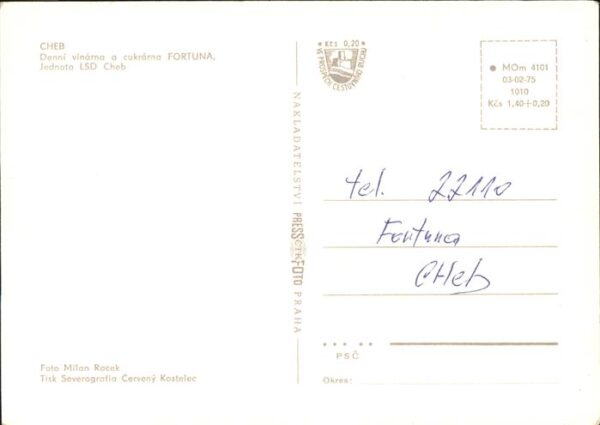 CHEB
Denní vinárna a cukrárna FORTUNA,
Jednota LSD Cheb
Kčs 0,20
VE PROSPĚCH CESTOVNÍHO RUCHU
MOm 4101
03-02-75
1010
Kčs 1,40+0,20
NAKLADATELSTVÍ PRESSFOTO PRAHA
ČTK
tel. 22110
Fortuna
CHeb
PSČ
Okres:
Foto Milan Racek
Tisk Severografia Červený Kostelec